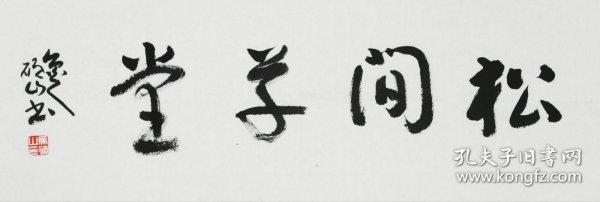 松间草堂
孔夫子旧书网
www.kongfz.com